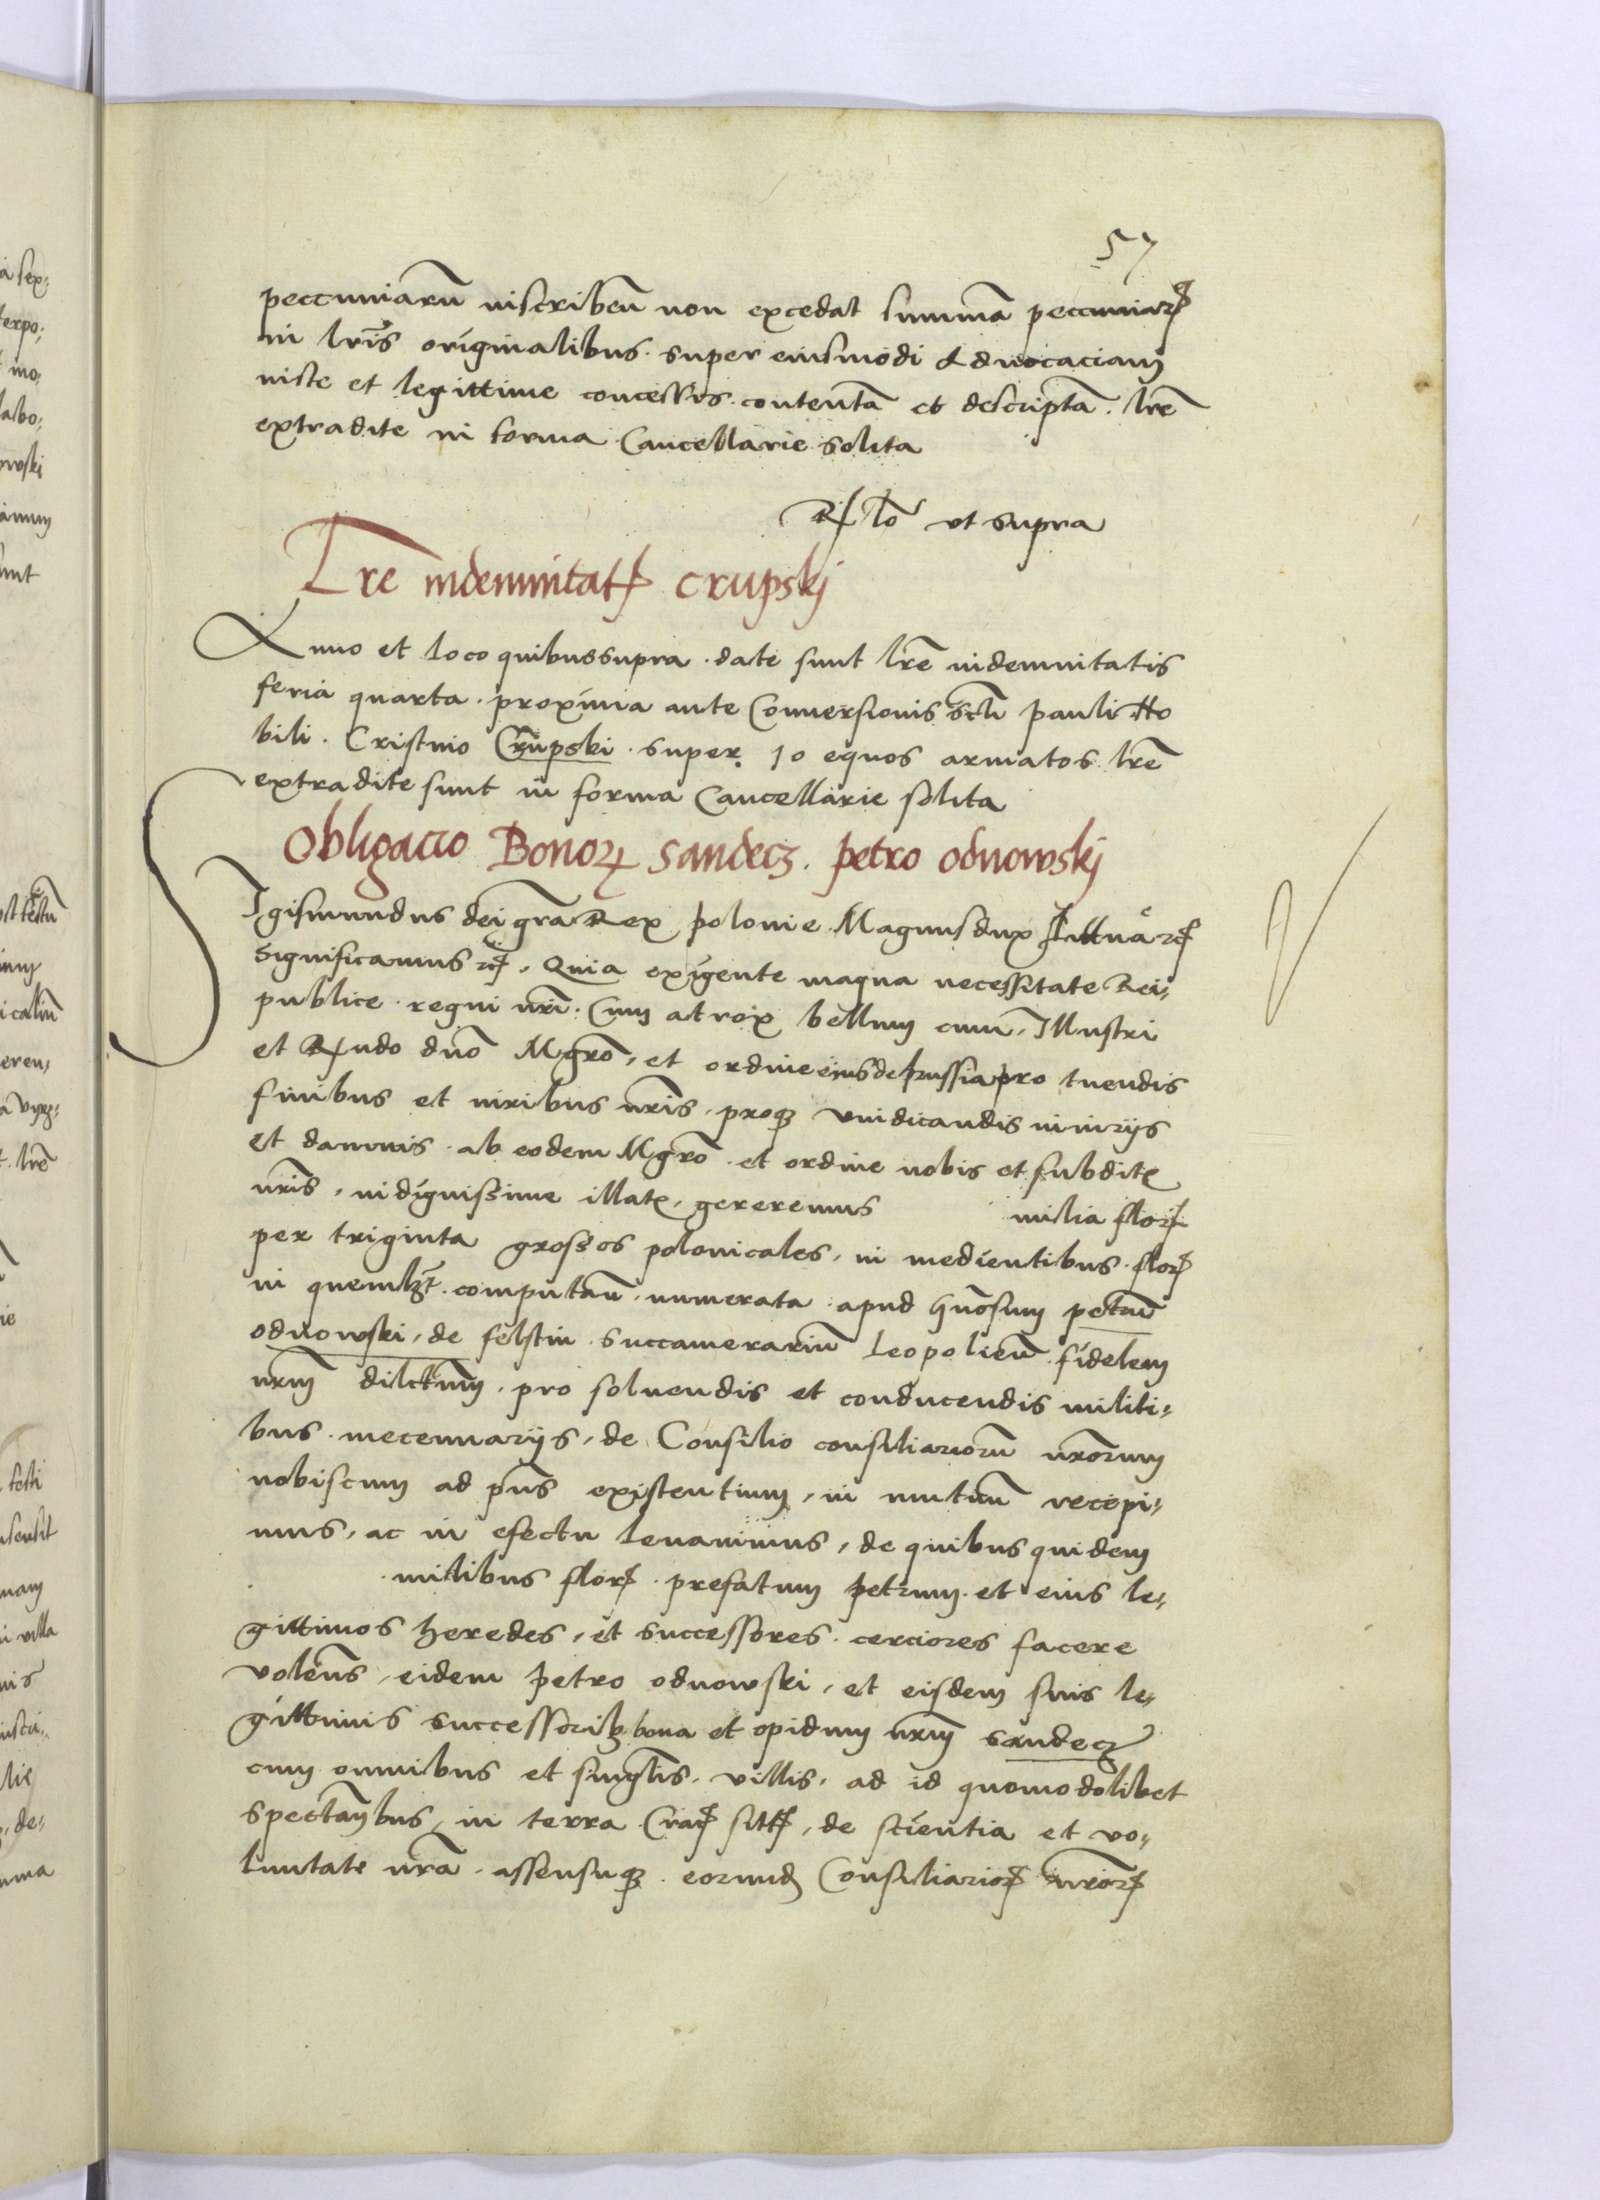 57
peccuniarū inscribeñ non excedat summā peccuniarꝭ
in lrīs originalibus super eiusmodi Advocaciam
iuste et legittime concessis contentā et descriptā. lrē
extradite in forma Cancellarie solita
Rlo ut supra
Lre indemnitatꝭ Crupskj
Anno et loco quibussupra date sunt lrē indemnitatis
feria quarta proxima ante Conversionis Scti pauli No
bili. Cristino Crupski super 10 equos armatos lrē
extradite sunt in forma Cancellarie solita
Obligacio Bonoꝝ Sandecz. petro odnowskj
Sigismundus dei gra Rex polonie Magnus dux Littuā ꝛcꝭ
Significamus ꝛcꝭ. Quia exigente magna necessitate Rei=
publice regni nri: Cum atrox bellum cum Illustri
et Rndo dnō Mgrō, et ordine eius de prussia pro tuendis
finibus et iuribus nrīs, proqꝫ vindicandis iniurijs
et damnis ab eodem Mgrō et ordine nobis et subditꝭ
nrīs, indignissime illatꝭ, gereremus milia florꝭ
per triginta grossos polonicales, in medientibus florꝭ
in quemlꝫt computañ numerata apud Gnōsum petrū
odnowski, de felstin succamerariū Leopolieñ fidelem
nrm̄ dilctum, pro solvendis et conducendis militi=
bus mecennarijs, de Consilio consiliariorū nrōrum
nobiscum ad pn̄s existentium, in mutuū recepi=
mus, ac in efectu levavimus, de quibus quidem
milibus florꝭ prefatum petrum et eius le=
gittimos heredes, et successores cerciores facere
volen̄s, eidem petro odnowski, et eisdem suis le=
gittimis successoribꝫ bona et opidum nrm̄ Sandecz
cum omnibus et singlīs villis, ad id quomodolibet
spectan̄bus, in terra Cracꝭ sittꝭ, de scientia et vo=
luntate nrā assensuqꝫ eorundꝫ Consiliariorꝭ nrōrꝭ